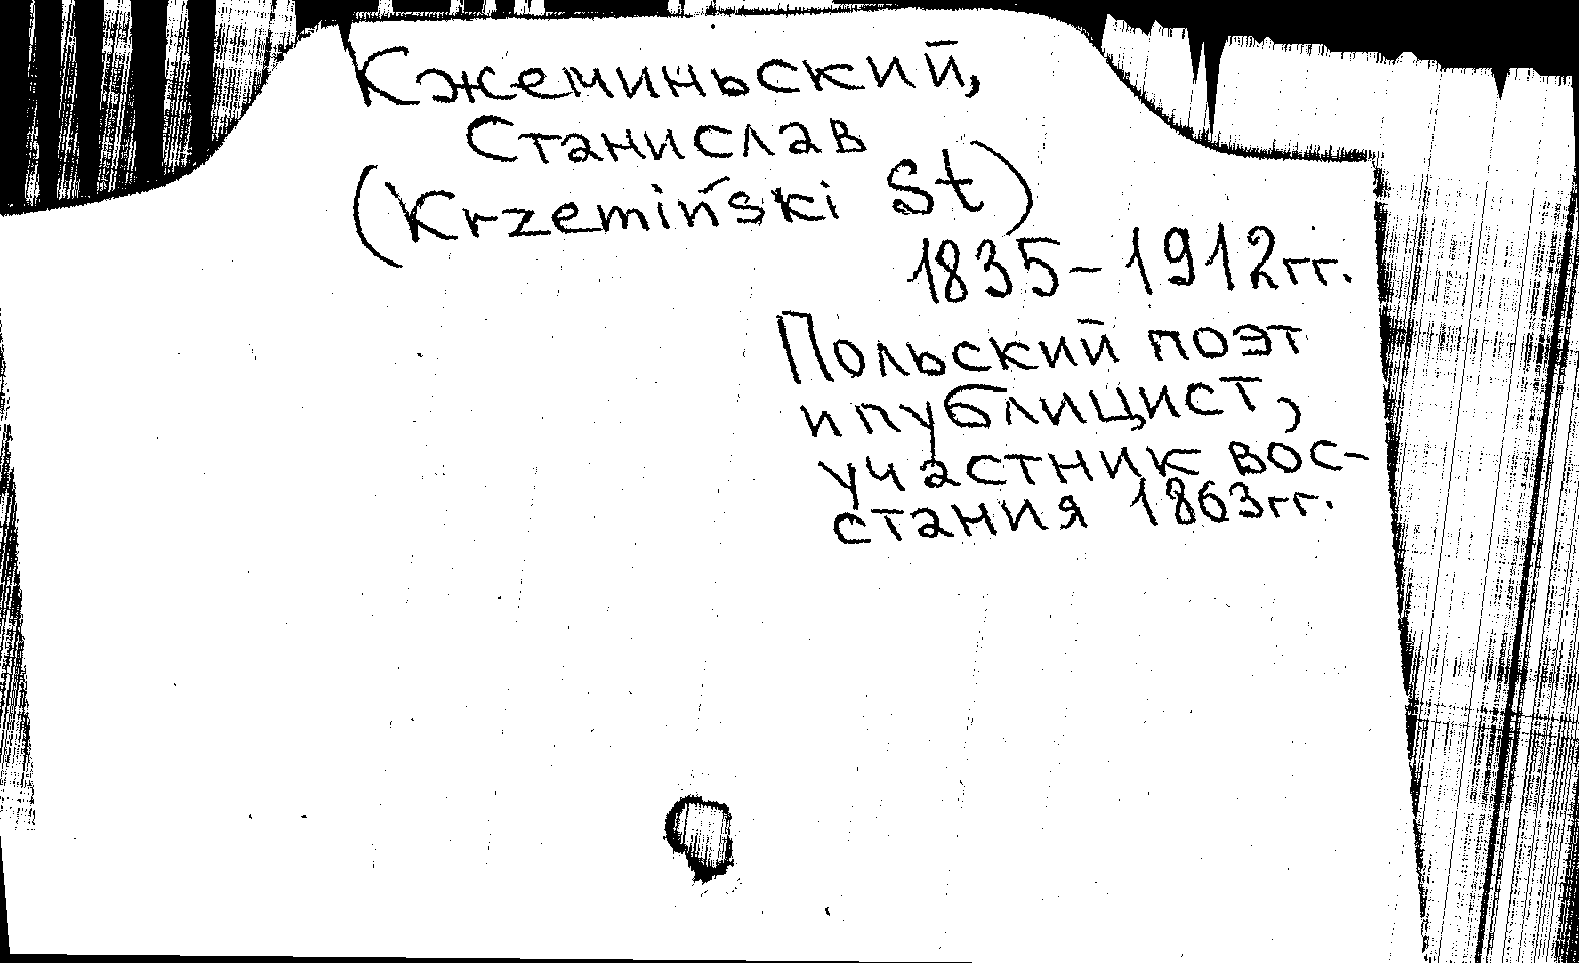 Кжеминьский,
Станислав
(Krzemiński St)
1835-1912гг.
Польский поэт
и публицист,
участник вос-
стания 1863гг.